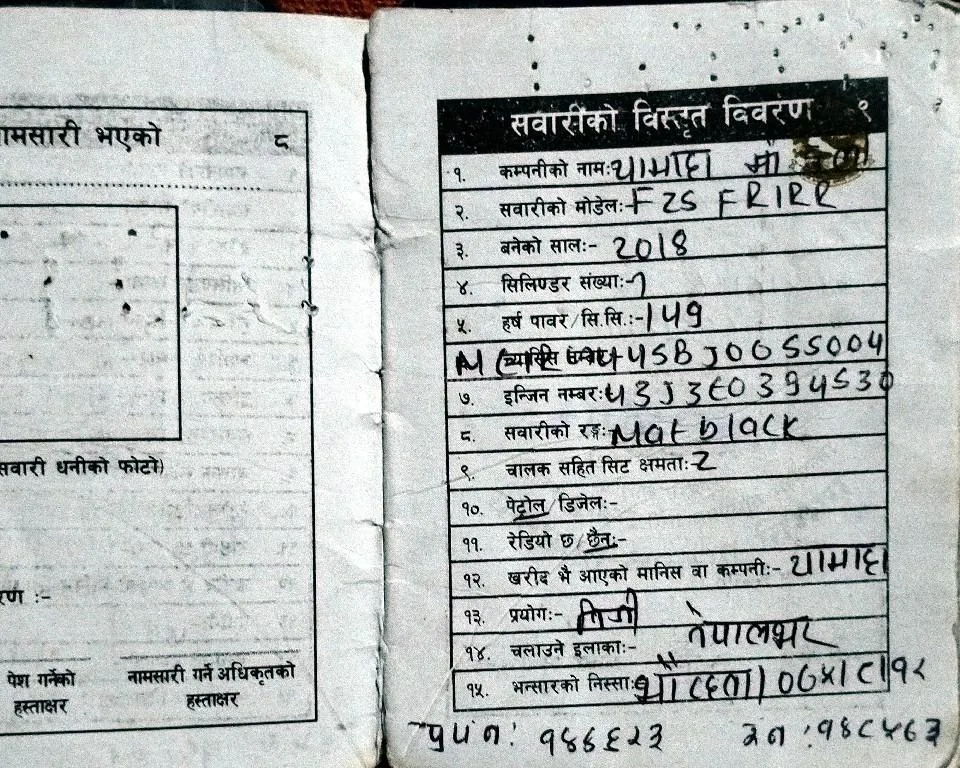 नामसारी भएको ८
सवारी धनीको फोटो)
पेश गर्नेको
हस्ताक्षर
नामसारी गर्ने अधिकृतको
हस्ताक्षर
सवारीको विस्तृत विवरण १
१. कम्पनीको नामः यामाहा मो
२. सवारीको मोडेलः- FZS FRIRR
३. बनेको सालः- 2018
४. सिलिण्डर संख्याः- १
५. हर्ष पावर/सि.सि.:- 149
45BJ0055004
७. इन्जिन नम्बरः
८. सवारीको रङ्गः- Mat black
९. चालक सहित सिट क्षमताः- 2
१०. पेट्रोल/डिजेलः-
११. रेडियो छ/छैनः-
१२. खरीद भै आएको मानिस वा कम्पनीः- यामाहा
१३. प्रयोगः- निजी
१४. चलाउने इलाकाः- नेपालभर
१५. भन्सारको निस्साः